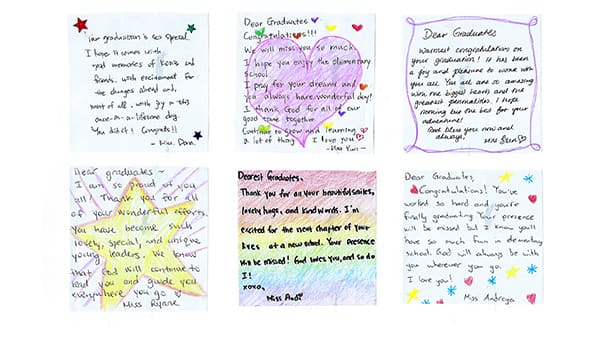 Your graduation is so special
I hope it comes with
good memories of
friends, with excitement for
the changes ahead and,
most of all, with joy in this
once-in-a-lifetime day.
You did it! Congrats!!
- Miss Dana.
Dear Graduates
Congratulations!!!
We will miss you so much.
I hope you enjoy the elementary
school.
I pray for your dreams and
you always have wonderful day!
I thank God for all of our
good time together
Continue to grow and learning
a lot of thing I love you
- Miss Yuri -
Dear Graduates
Warmest congratulations on
your graduation! It has been
a joy and pleasure to work with
you all. You all are so amazing
with the biggest hearts and the
greatest personalities. I hope
nothing but the best for your
adventure!
God bless you now and
always.
Miss
Dear graduates ~
I am so proud of you
all! Thank you for all
of your wonderful efforts.
You have become such
lovely, special, and unique
young leaders. We know
that God will continue to
lead you and guide you
everywhere you go
Miss Ryane
Dearest Graduates,
Thank you for all your beautiful smiles,
lovely hugs, and kind words. I'm
excited for the next chapter of your
lives at a new school. Your presence
will be missed! God loves you, and so do
I!
xoxo,
Miss Audi
Dear Graduates,
Congratulations! You've
worked so hard and you're
finally graduating. Your presence
will be missed but I know you'll
have so much fun in elementary
school. God will always be with
you wherever you go.
I love you!
Miss Andreya